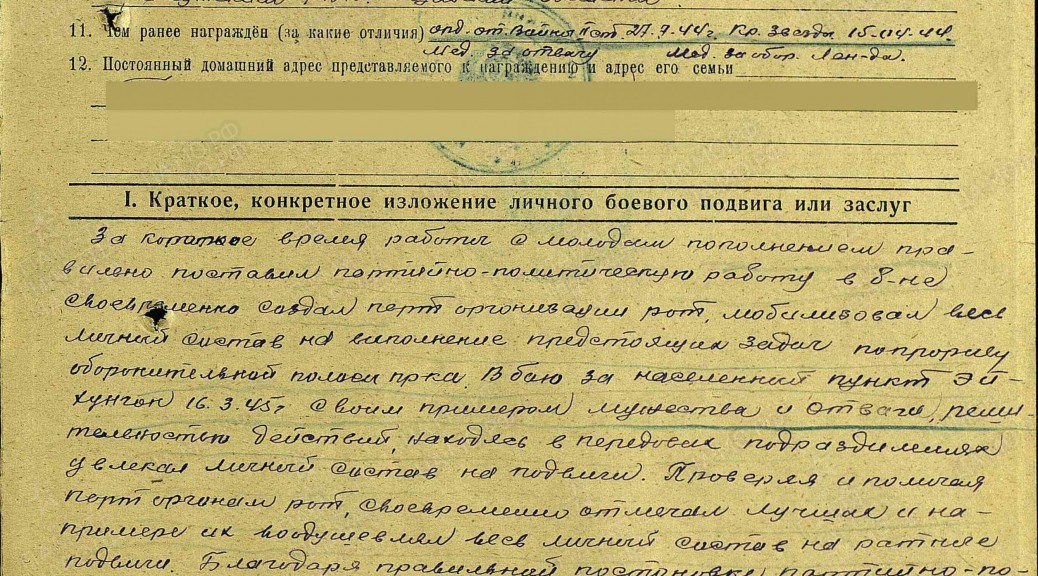 11. Чем ранее награждён (за какие отличия) орд. от. Войны II ст. 27.9.44г. Кр. Звезда 15.04.44.
Мед. За отвагу Мед. за обор. Лен-да.
12. Постоянный домашний адрес представляемого к награждению и адрес его семьи
I. Краткое, конкретное изложение личного боевого подвига или заслуг
За короткое время работы с молодым пополнением пра-
вильно поставил партийно-политическую работу в б-не
Своевременно создал парт организации рот, мобилизовал весь
личный состав на выполнение предстоящих задач по прорыву
оборонительной полосы пр-ка. В бою за населенный пункт Эй-
хунгон 16.3.45г. своим примером мужества и отваги, реши-
тельностью действий, находясь в передовых подразделениях
увлекал личный состав на подвиги. Проверяя и помогая
парт органам рот, своевременно отмечал лучших и на-
примере их воодушевлял весь личный состав на ратные
подвиги. Благодаря правильной постановке партийно-по-